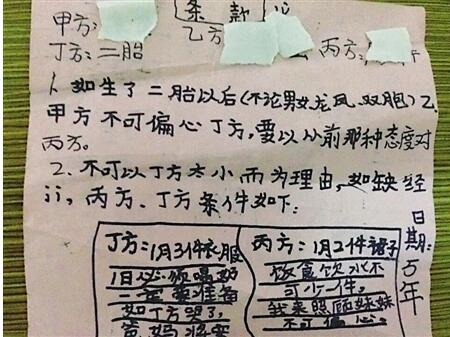 条款
甲方: 乙方 丙方:
丁方:二胎
1、如生了二胎以后(不论男女,龙凤、双胞)乙
甲方不可偏心丁方,要以从前那种态度对
丙方。
2、不可以丁方太小而为理由,如缺经
济,丙方、丁方条件如下:
丁方:1月3件衣服
1日必须喝奶
一定要准备
如丁方哭了,
爸妈将要
丙方:1月2件裙子
饮食饮水不
可少一件。
我来照顾妹妹
不可偏心。
日期:5年